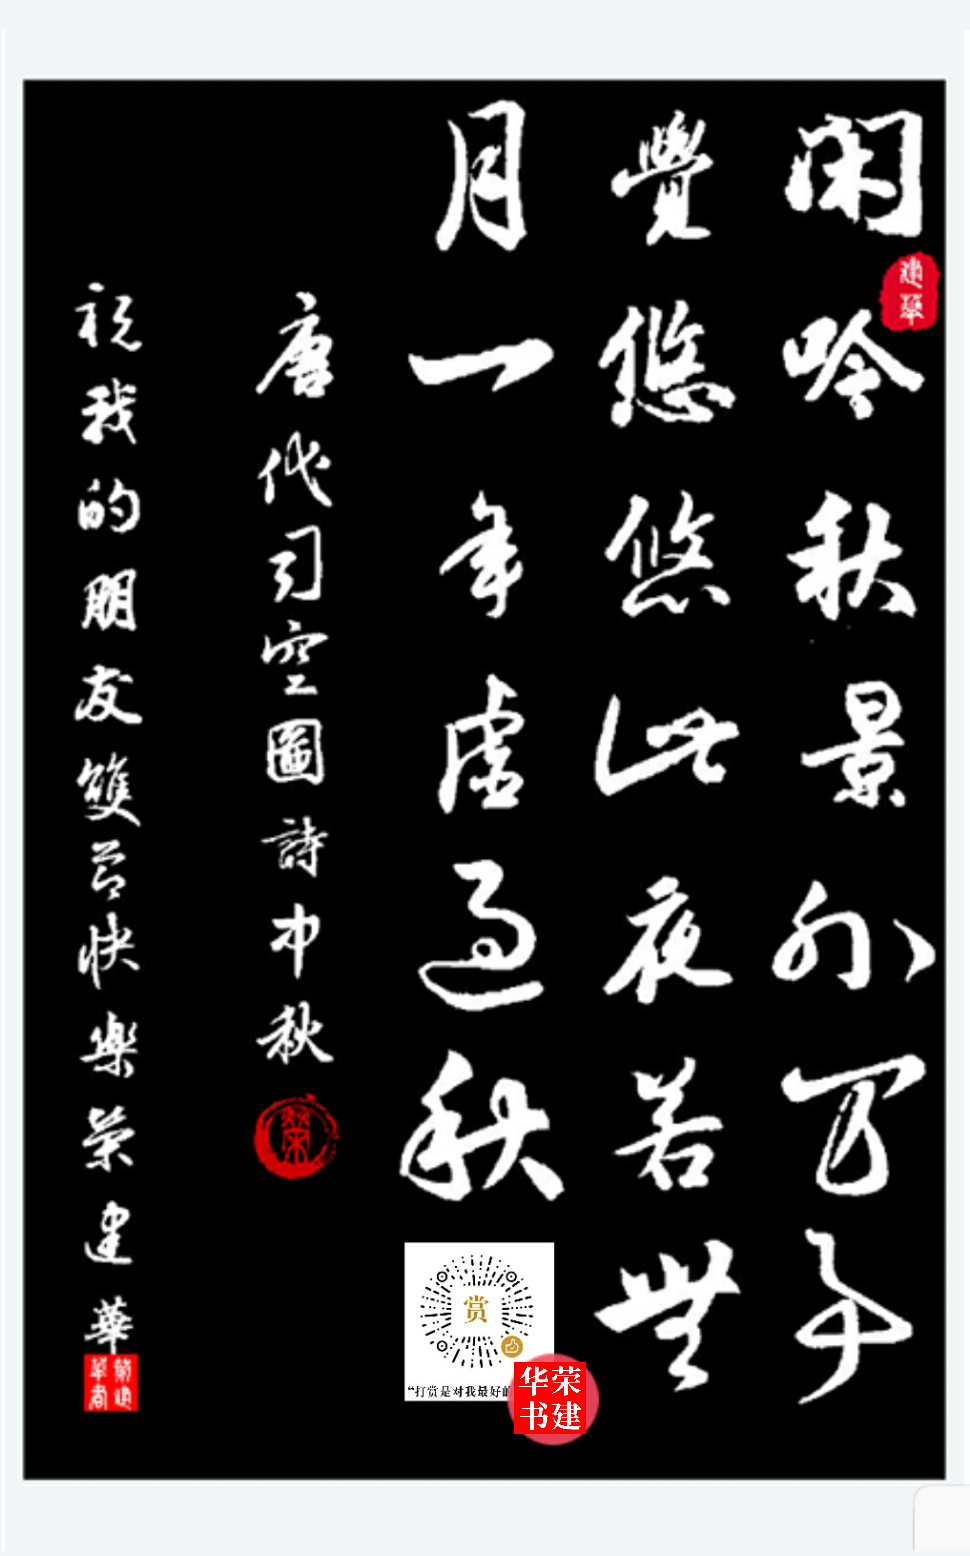 閑吟秋景外万事
覺悠悠此夜若無
月一年虚過秋
唐代司空圖詩中秋
祝我的朋友雙节快樂榮建華
建華
榮
赏
“打赏是对我最好的
华荣
书建